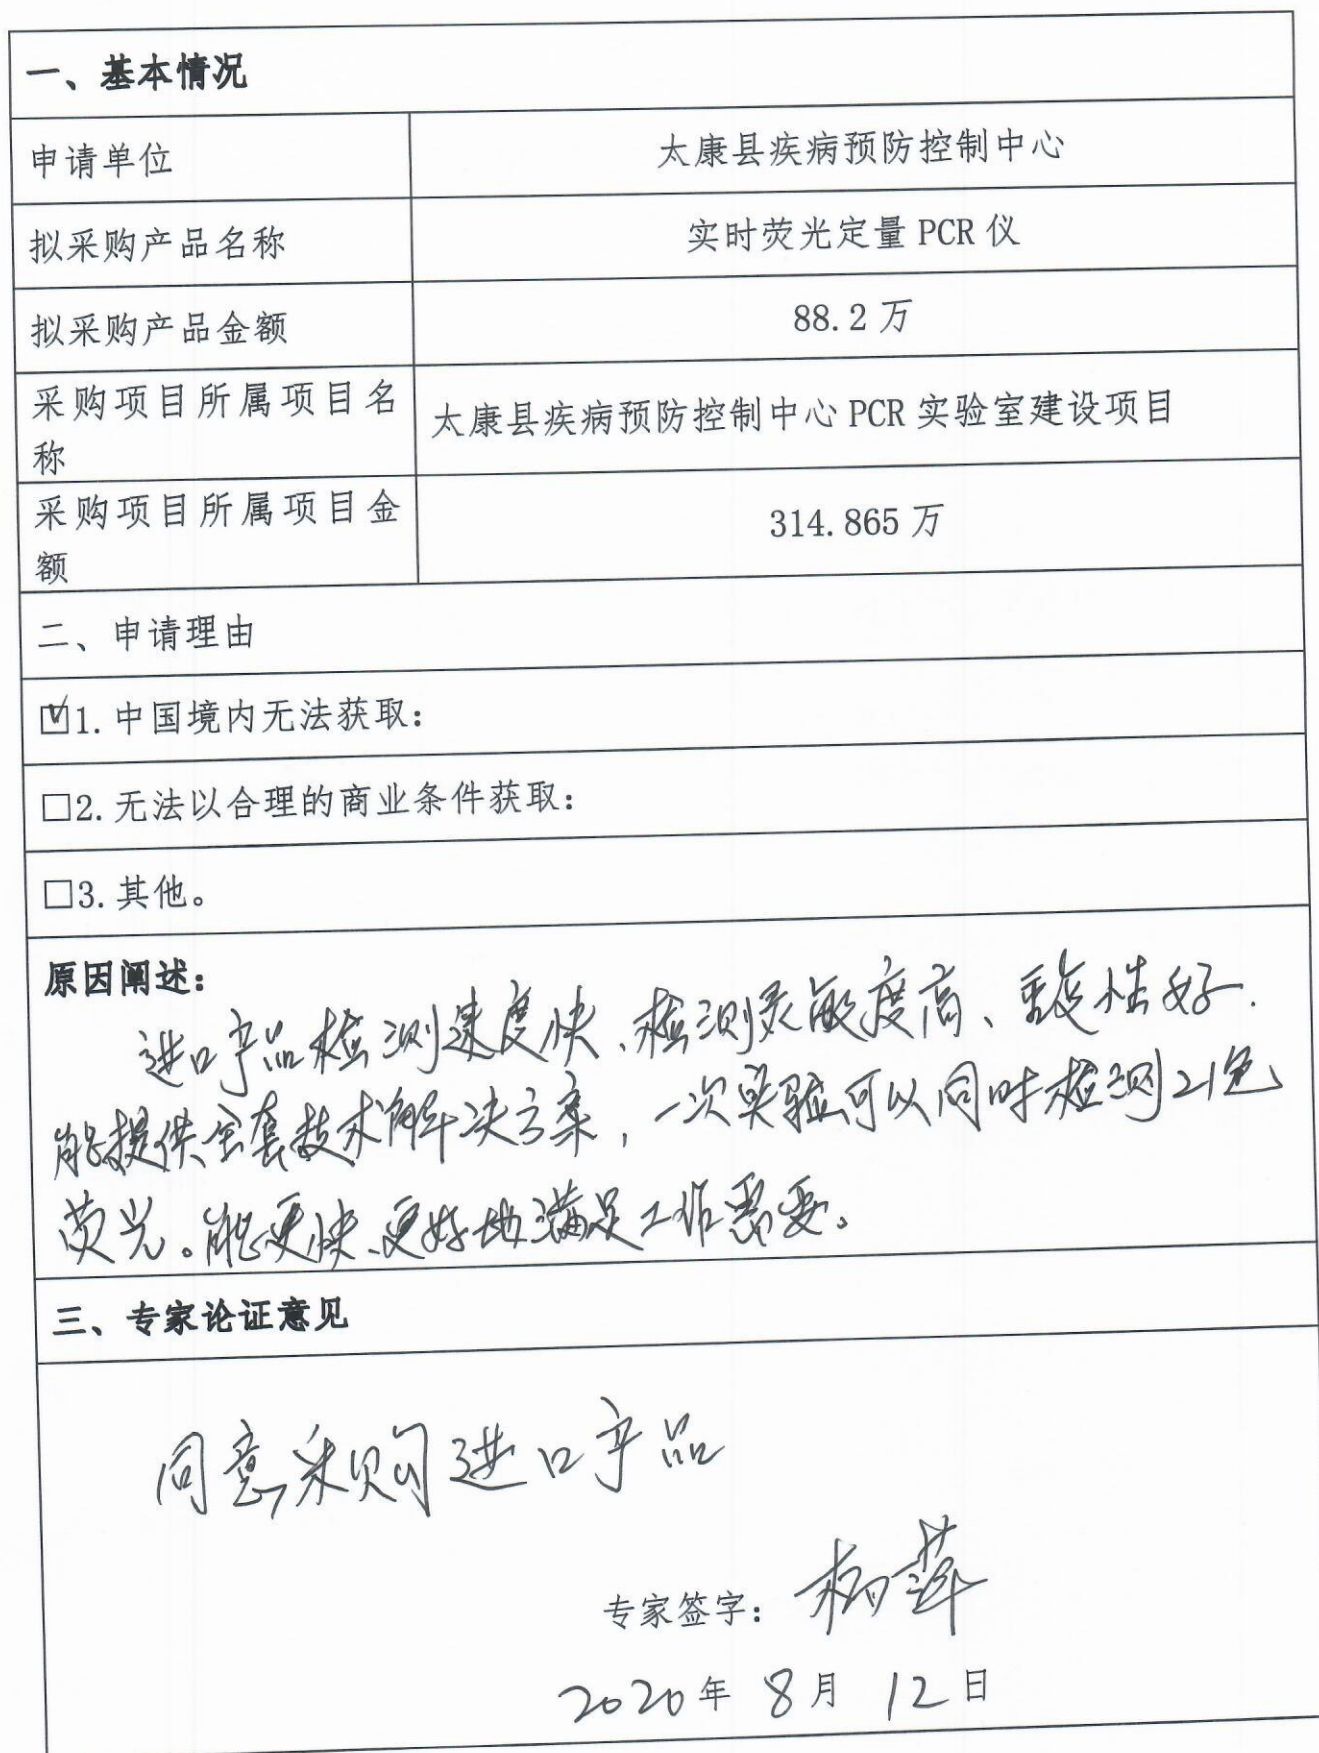 一、基本情况
申请单位
太康县疾病预防控制中心
拟采购产品名称
实时荧光定量 PCR 仪
拟采购产品金额
88.2 万
采购项目所属项目名
称
太康县疾病预防控制中心 PCR 实验室建设项目
采购项目所属项目金
额
314.865 万
二、申请理由
☑1.中国境内无法获取：
□2.无法以合理的商业条件获取：
□3.其他。
原因阐述：
进口产品检测速度快、检测灵敏度高、重复性好.
能提供全套技术解决方案，一次实验可以同时检测21色
荧光。能更快、更好地满足工作需要。
三、专家论证意见
同意采购进口产品
专家签字：
2020年 8月 12日